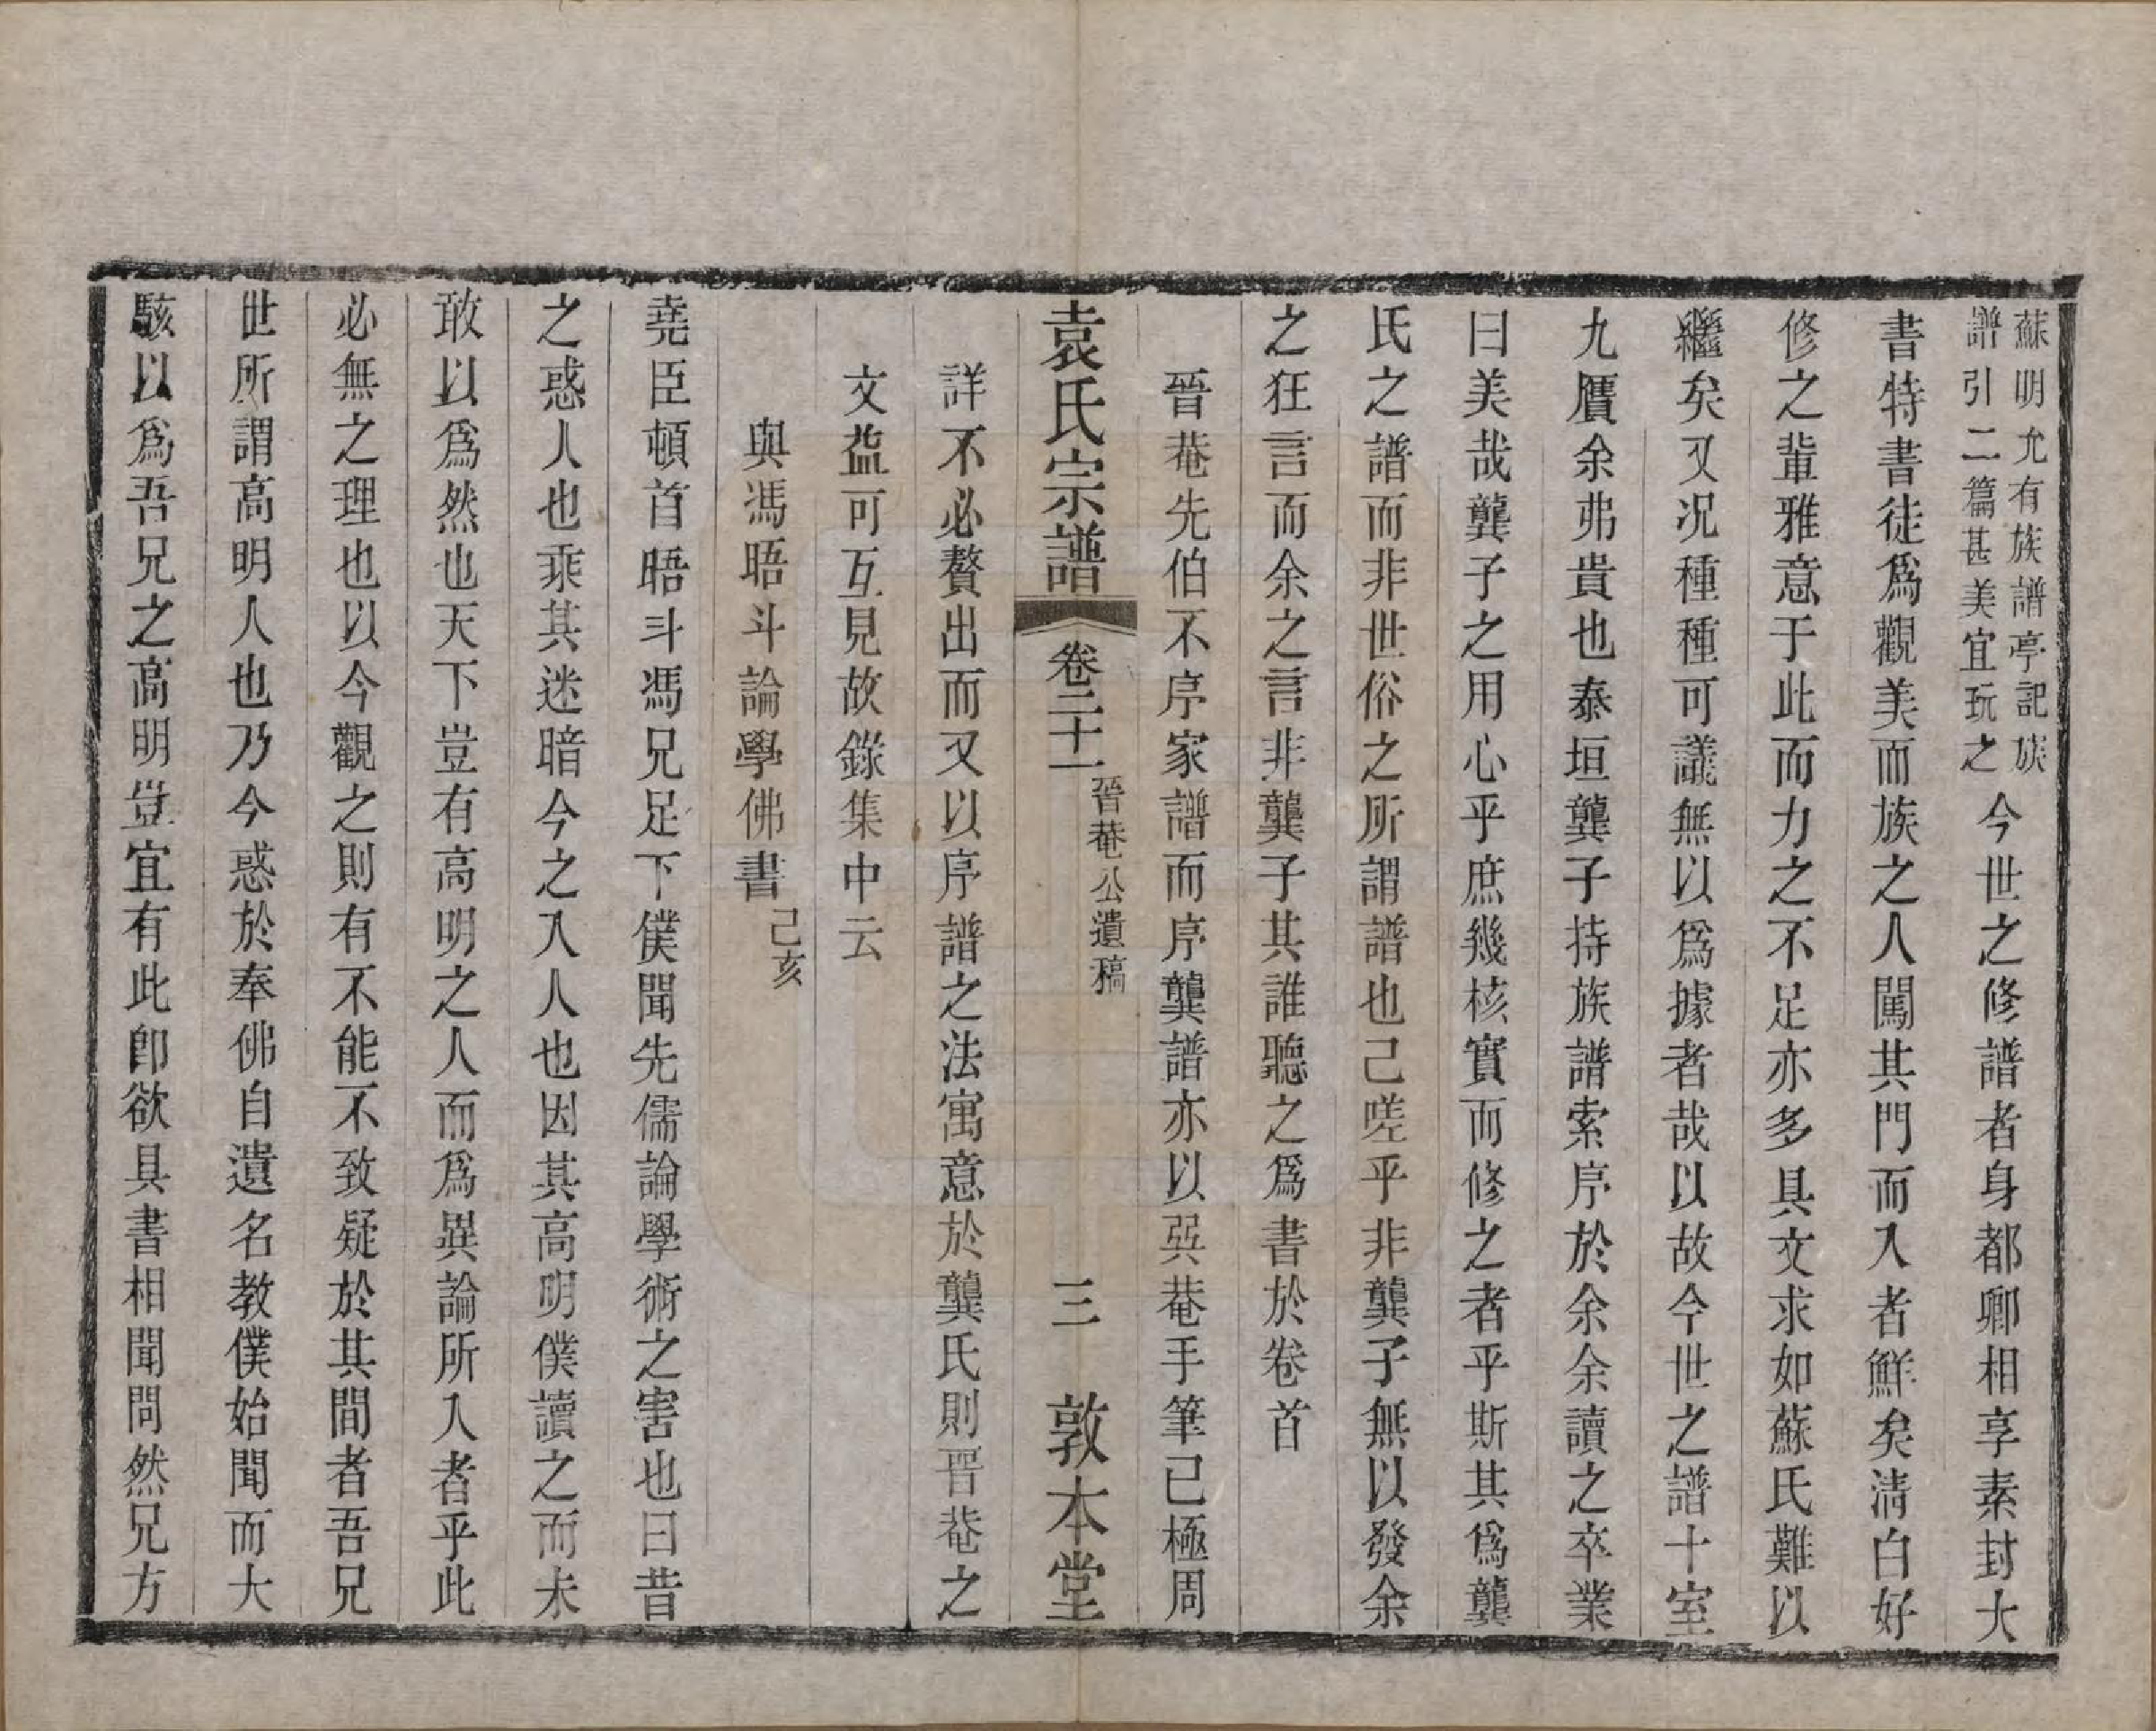 蘇明允有族譜亭記族
譜引二篇甚美宜玩之
今世之修譜者身都卿相享素封大
書特書徒爲觀美而族之人闖其門而入者鮮矣淸白好
修之輩雅意于此而力之不足亦多具文求如蘇氏難以
繼矣又況種種可議無以爲據者哉以故今世之譜十室
九贋余弗貴也泰垣龔子持族譜索序於余余讀之卒業
曰美哉龔子之用心乎庶幾核實而修之者乎斯其爲龔
氏之譜而非世俗之所謂譜也已嗟乎非龔子無以發余
之狂言而余之言非龔子其誰聽之爲書於卷首
晉菴先伯不序家譜而序龔譜亦以巽菴手筆已極周
袁氏宗譜
卷二十一
晉菴公遺稿
三
敦本堂
詳不必贅出而又以序譜之法寓意於龔氏則晉菴之
文益可互見故錄集中云
與馮晤斗論學佛書
己亥
堯臣頓首晤斗馮兄足下僕聞先儒論學術之害也曰昔
之惑人也乘其迷暗今之入人也因其高明僕讀之而未
敢以爲然也天下豈有高明之人而爲異論所入者乎此
必無之理也以今觀之則有不能不致疑於其間者吾兄
世所謂高明人也乃今惑於奉佛自遺名教僕始聞而大
駭以爲吾兄之高明豈宜有此卽欲具書相聞問然兄方